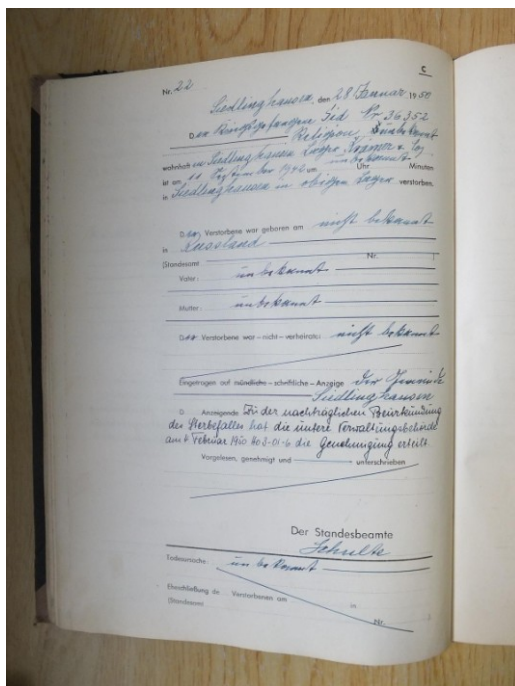 C
Nr. 22
Siedlinghausen, den 28 Januar 1950
Der Kriegsgefangene Sid Nr 36352
Religion, unbekannt
wohnhaft in Siedlinghausen Lager Krämer &
ist am 11 September 1942 um unbekannt Uhr Minuten
in Siedlinghausen in obigen Lager verstorben.
Der Verstorbene war geboren am nicht bekannt
in Russland
(Standesamt Nr. )
Vater: unbekannt
Mutter: unbekannt
Der Verstorbene war – nicht – verheiratet nicht bekannt
Eingetragen auf mündliche – schriftliche – Anzeige der Gemeinde
Siedlinghausen
D Anzeigende Zu der nachträglichen Beurkundung
des Sterbefalles hat die untere Verwaltungsbehörde
am Februar 1950 die Genehmigung erteilt.
Vorgelesen, genehmigt und unterschrieben
Der Standesbeamte
Schulte
Todesursache: unbekannt
Eheschließung de Verstorbenen am in
(Standesamt Nr.